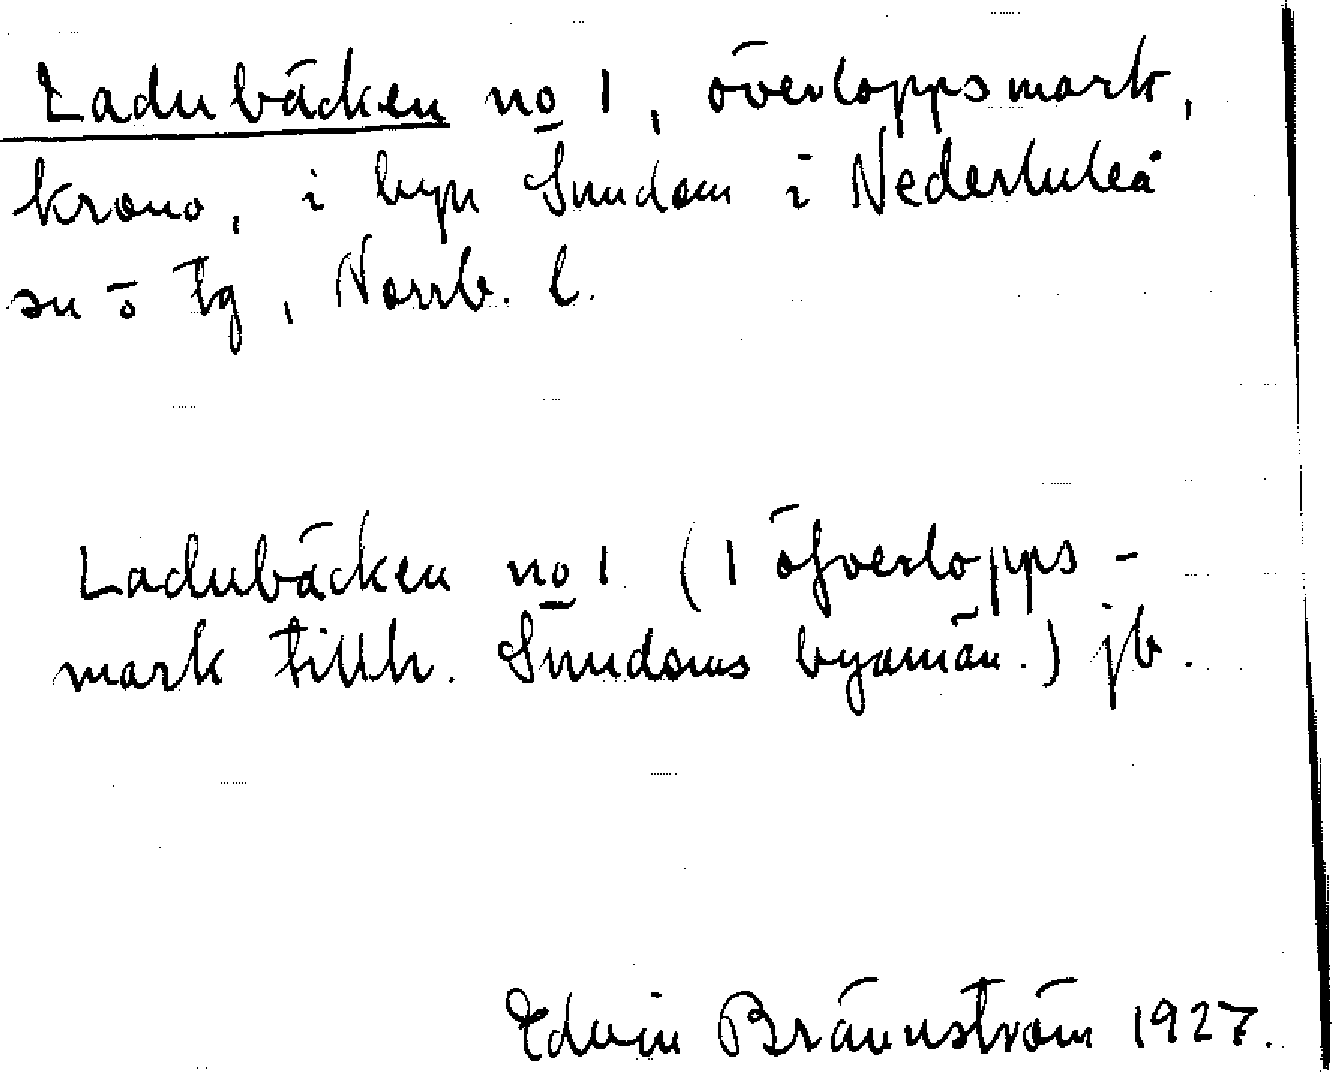 Ladubäcken no 1, överloppsmark,
krono, i byn Sundom i Nederluleå
sn o tg, Norrb. l.
Ladubäcken no 1 (1 öfverlopps-
mark tillh. Sundoms byamän.) jb.
Edvin Brännström 1927.